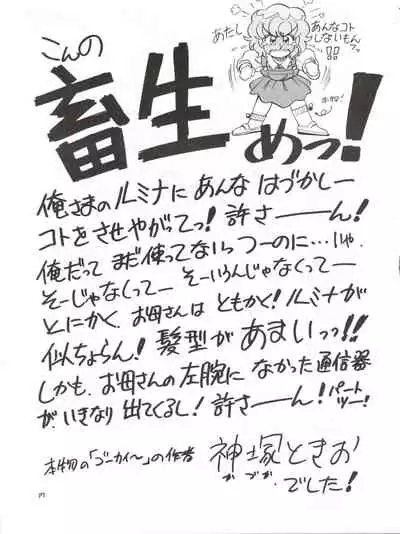 こんの
畜生
めっ!
あたし
あんなコト
しないもん
!!
俺さまのルミナに あんな はづかしー
コトをさせやがってっ! 許さーーん!
俺だって まだ使ってないっつーのに…じゃ、
そーじゃなくってー そーいうんじゃなくってー
とにかく、お母さんは ともかく! ルミナが
似ちょらん! 髪型が あまいっっ!!
しかも、お母さんの左腕に なかった通信器
が、いきなり 出てくるし! 許さーん! パート
ツー!
本物の「ゴーカイ〜」の作者
神塚ときお
でした!